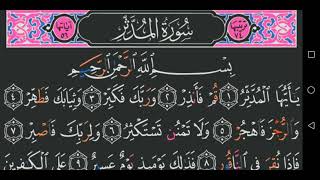 ترتيبها ٧٤ سُورَةُ الْمُدَّثِّرِ آياتها ٥٦
بِسْمِ اللَّهِ الرَّحْمَٰنِ الرَّحِيمِ
يَا أَيُّهَا الْمُدَّثِّرُ ١ قُمْ فَأَنذِرْ ٢ وَرَبَّكَ فَكَبِّرْ ٣ وَثِيَابَكَ فَطَهِّرْ ٤
وَالرُّجْزَ فَاهْجُرْ ٥ وَلَا تَمْنُن تَسْتَكْثِرُ ٦ وَلِرَبِّكَ فَاصْبِرْ ٧
فَإِذَا نُقِرَ فِي النَّاقُورِ ٨ فَذَٰلِكَ يَوْمَئِذٍ يَوْمٌ عَسِيرٌ ٩ عَلَى الْكَافِرِينَ